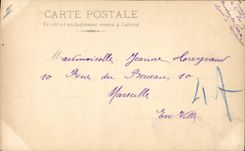 CARTE POSTALE
Ce côté est exclusivement réservé à l'adresse
Mademoiselle Jeanne
10 Rue du Berceau 10
Marseille
En Ville
47